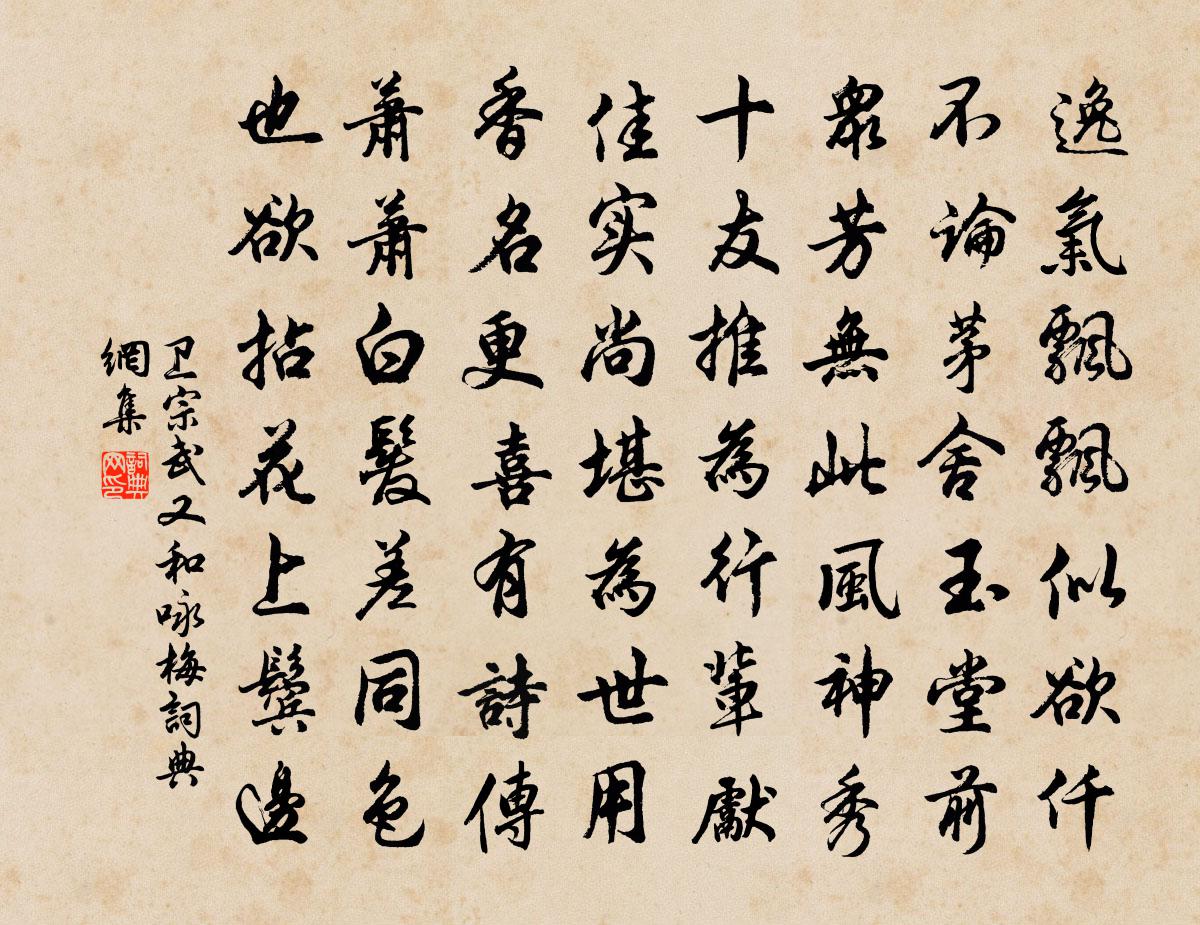 逸氣飄飄似欲仟
不論茅舍玉堂前
眾芳無此風神秀
十友推為行輩獻
佳实尚堪為世用
香名更喜有詩傳
蕭蕭白髮差同色
也欲拈花上鬢邊
卫宗武又和咏梅詞典
網集
詞典
网印